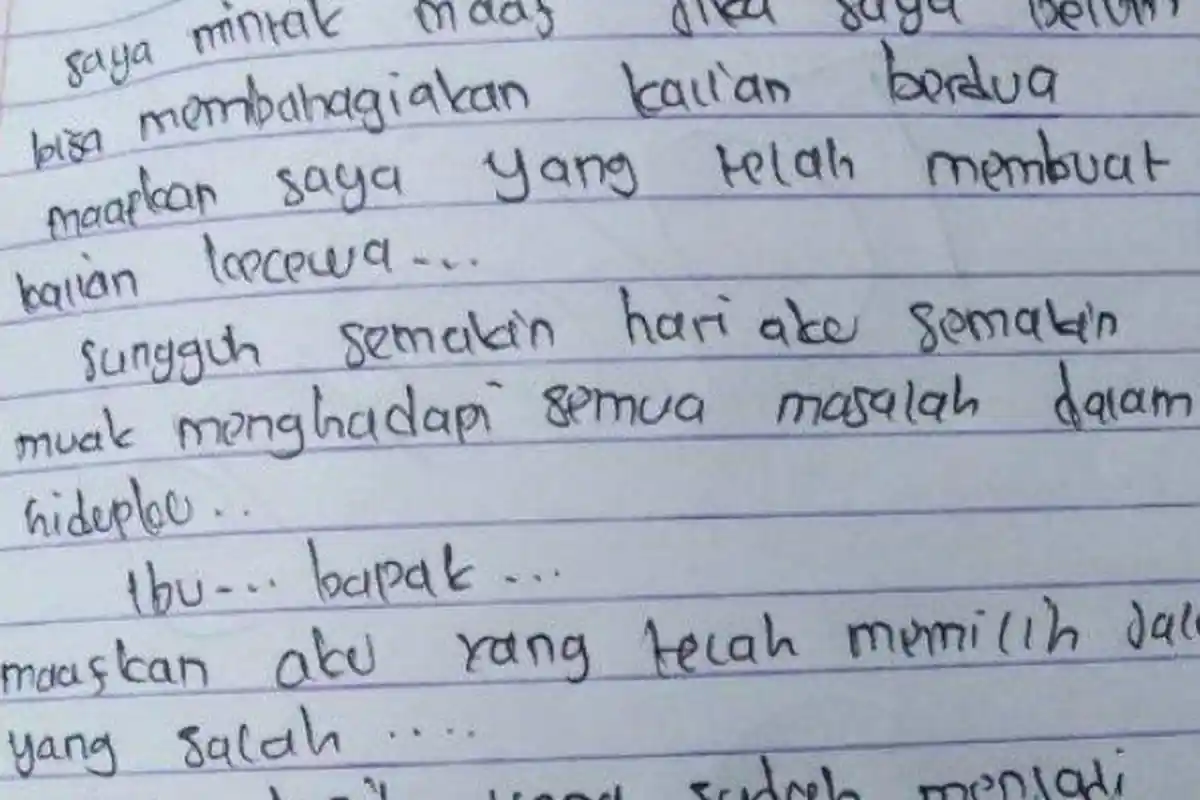 saya mintak maaf jika saya belum
bisa membahagiakan kalian berdua
maapkan saya yang telah membuat
kalian kecewa...
sungguh semakin hari aku semakin
muak menghadapi semua masalah dalam
hidupku..
Ibu... bapak...
maafkan aku yang telah memilih jal
yang salah ....
yang sudah menjadi